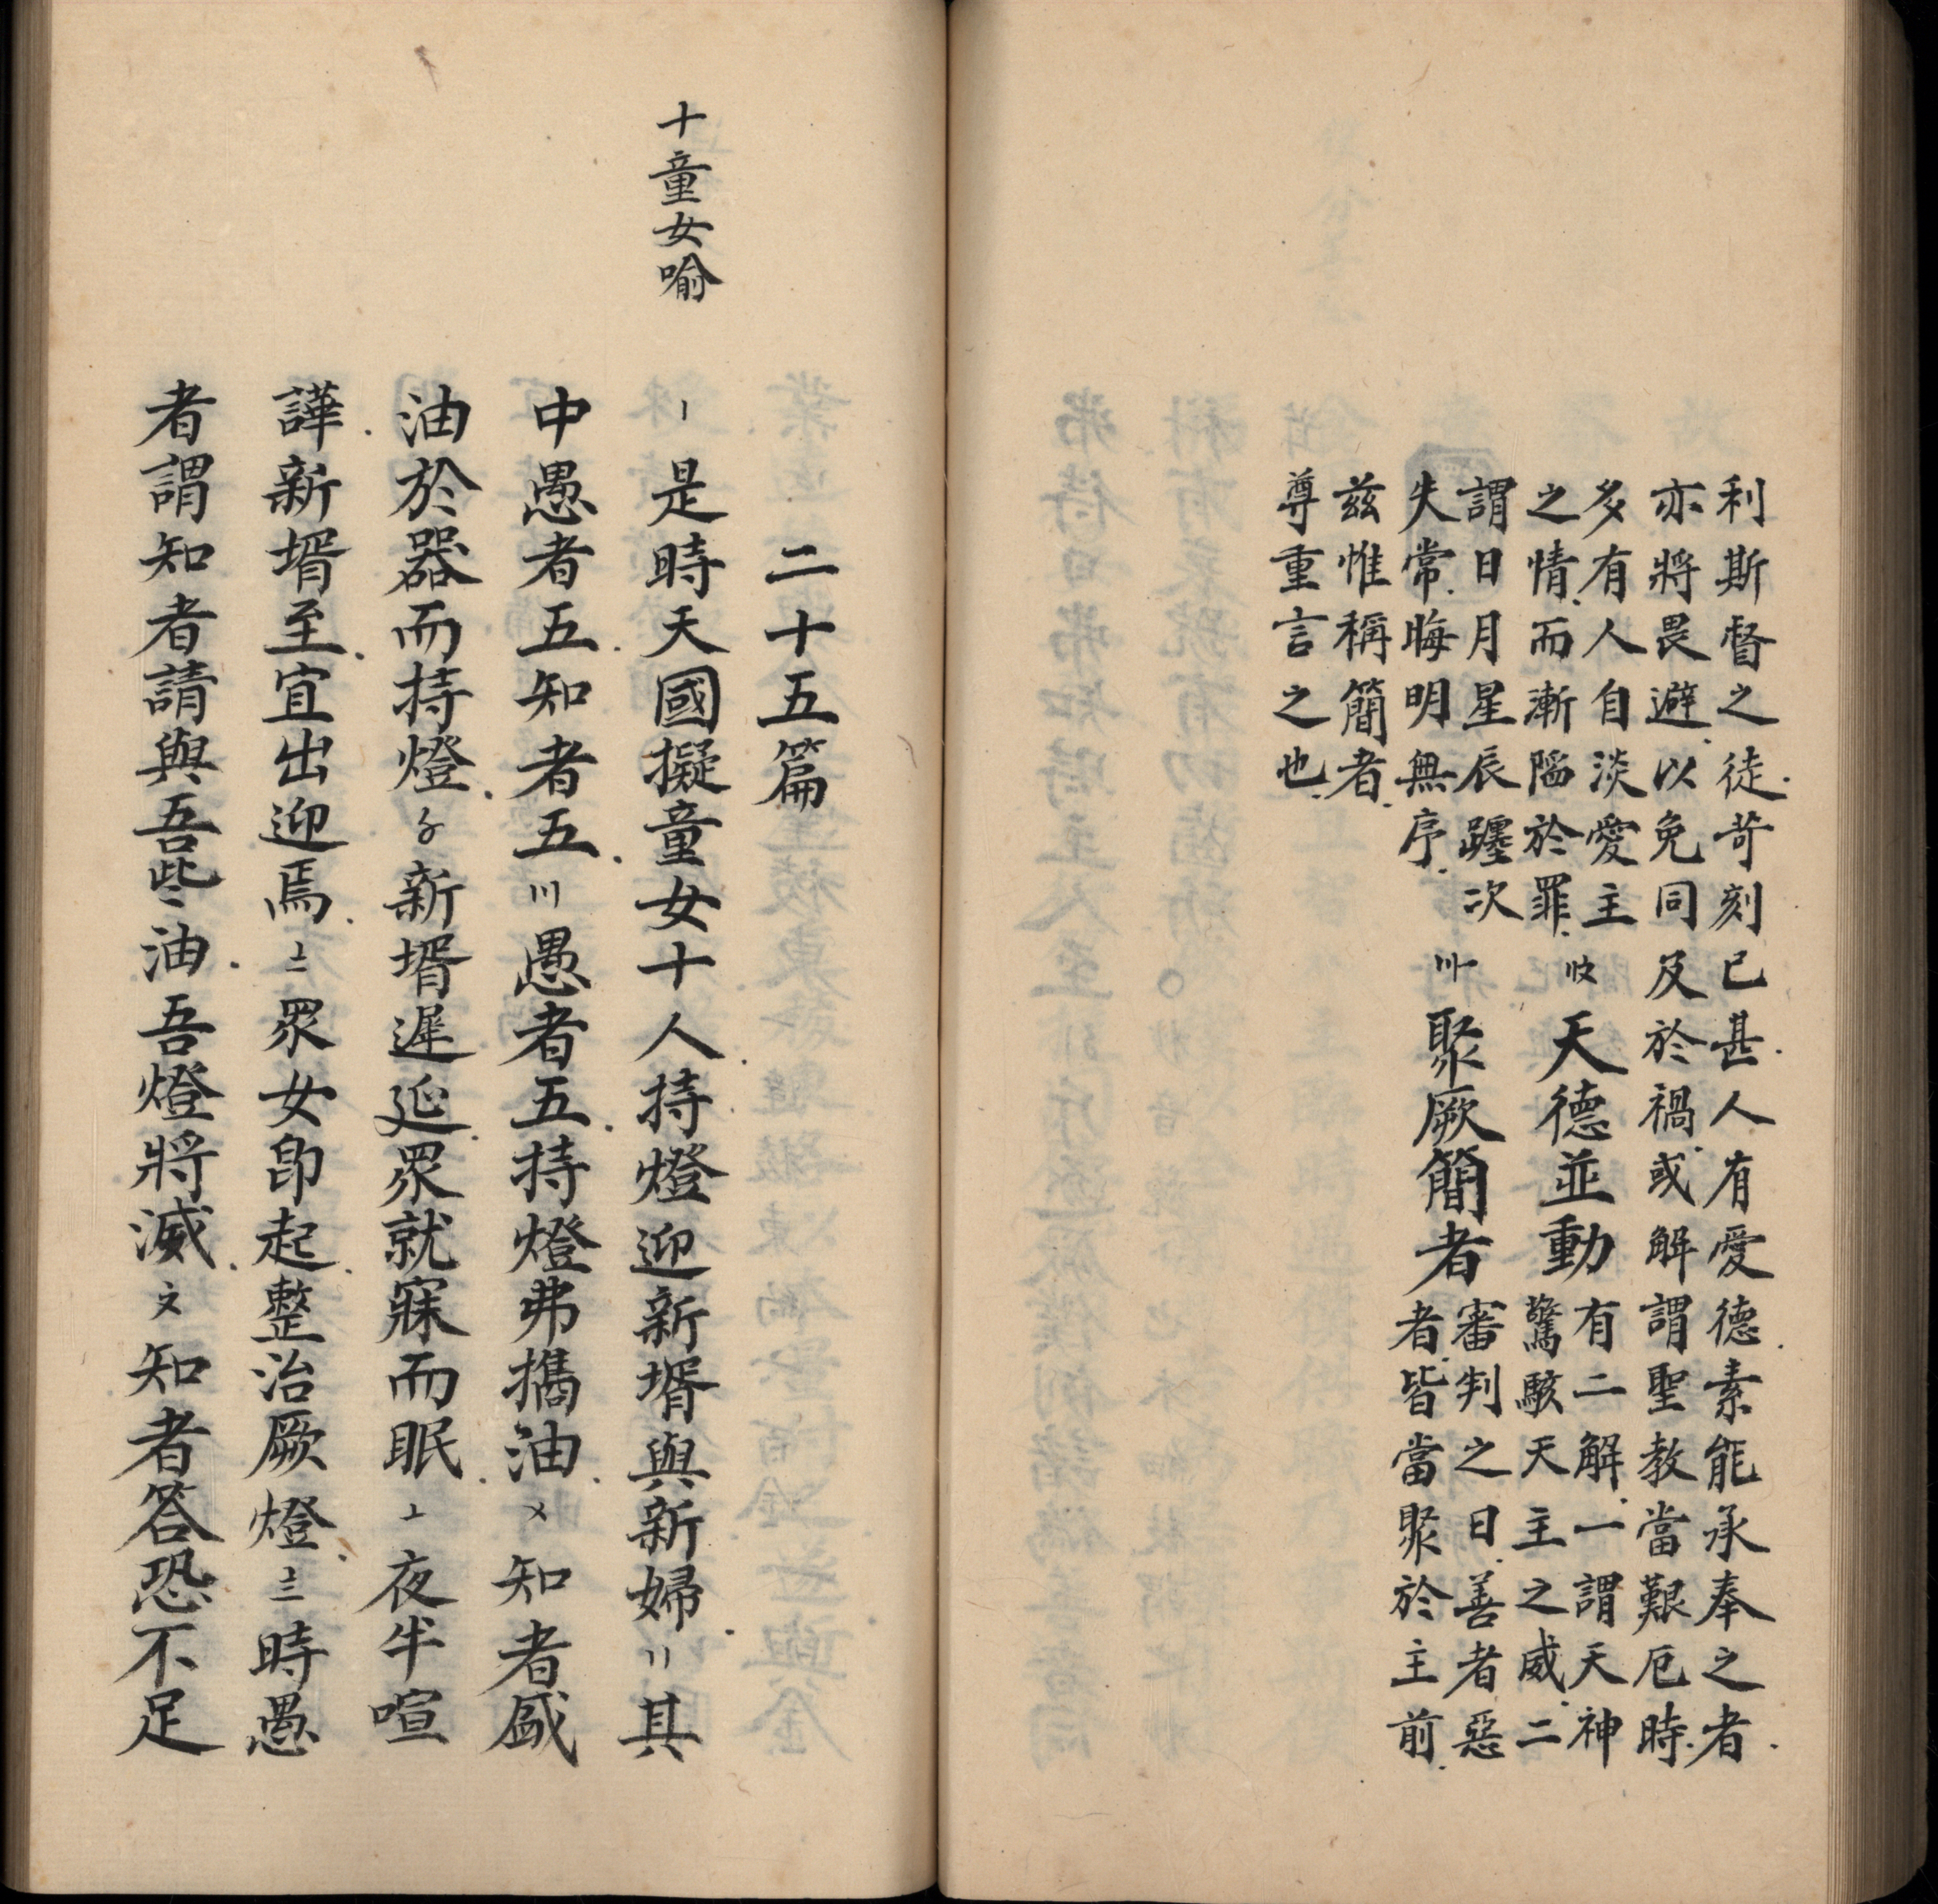 利斯督之徒苛刻已甚人有愛德素能承奉之者
亦將畏避以免同及於禍或解謂聖教當艱厄時
多有人自淡愛主
之情而漸陷於罪
〢〩天德並動
有二解一謂天神
驚駭天主之威二
謂日月星辰躔次
失常晦明無序
〣〡聚厥簡者
審判之日善者惡
者皆當聚於主前
茲惟稱簡者
尊重言之也
二十五篇
十童女喻
〡是時天國擬童女十人持燈迎新壻與新婦〢其
中愚者五知者五〣愚者五持燈弗攜油〤知者盛
油於器而持燈〥新壻遲延眾就寐而眠〦夜半喧
譁新壻至宜出迎焉〧眾女即起整治厥燈〨時愚
者謂知者請與吾些油吾燈將滅〩知者答恐不足